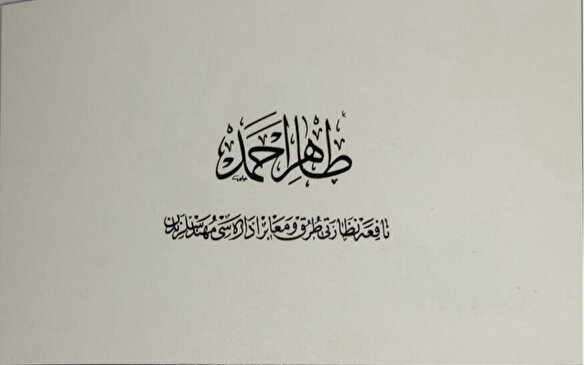 طاهر احمد
نافعه نظارتی طُرُق و مَعابر اداره‌سی مُهندسلرندن